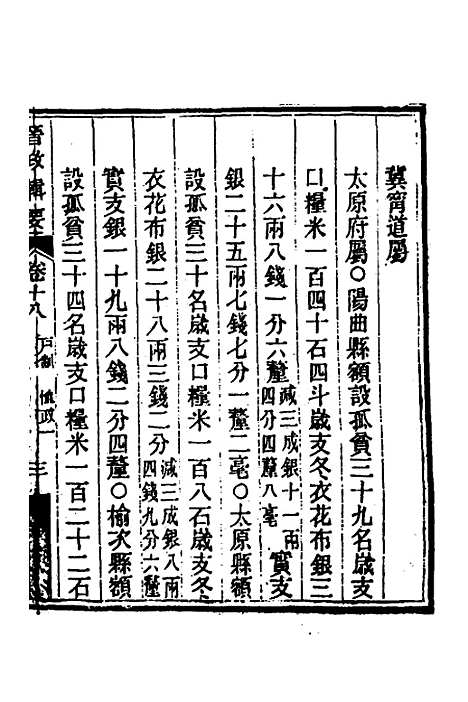 冀寧道屬
太原府屬○陽曲縣額設孤貧三十九名歲支
口糧米一百四十石四斗歲支冬衣花布銀三
十六兩八錢一分六釐減三成銀十一兩四分四釐八毫實支
銀二十五兩七錢七分一釐二毫○太原縣額
設孤貧三十名歲支口糧米一百八石歲支冬
衣花布銀二十八兩三錢二分減三成銀八兩四錢九分六釐
實支銀一十九兩八錢二分四釐○榆次縣額
設孤貧三十四名歲支口糧米一百二十二石
晉政輯要 卷十八 戶制 恤政一 三